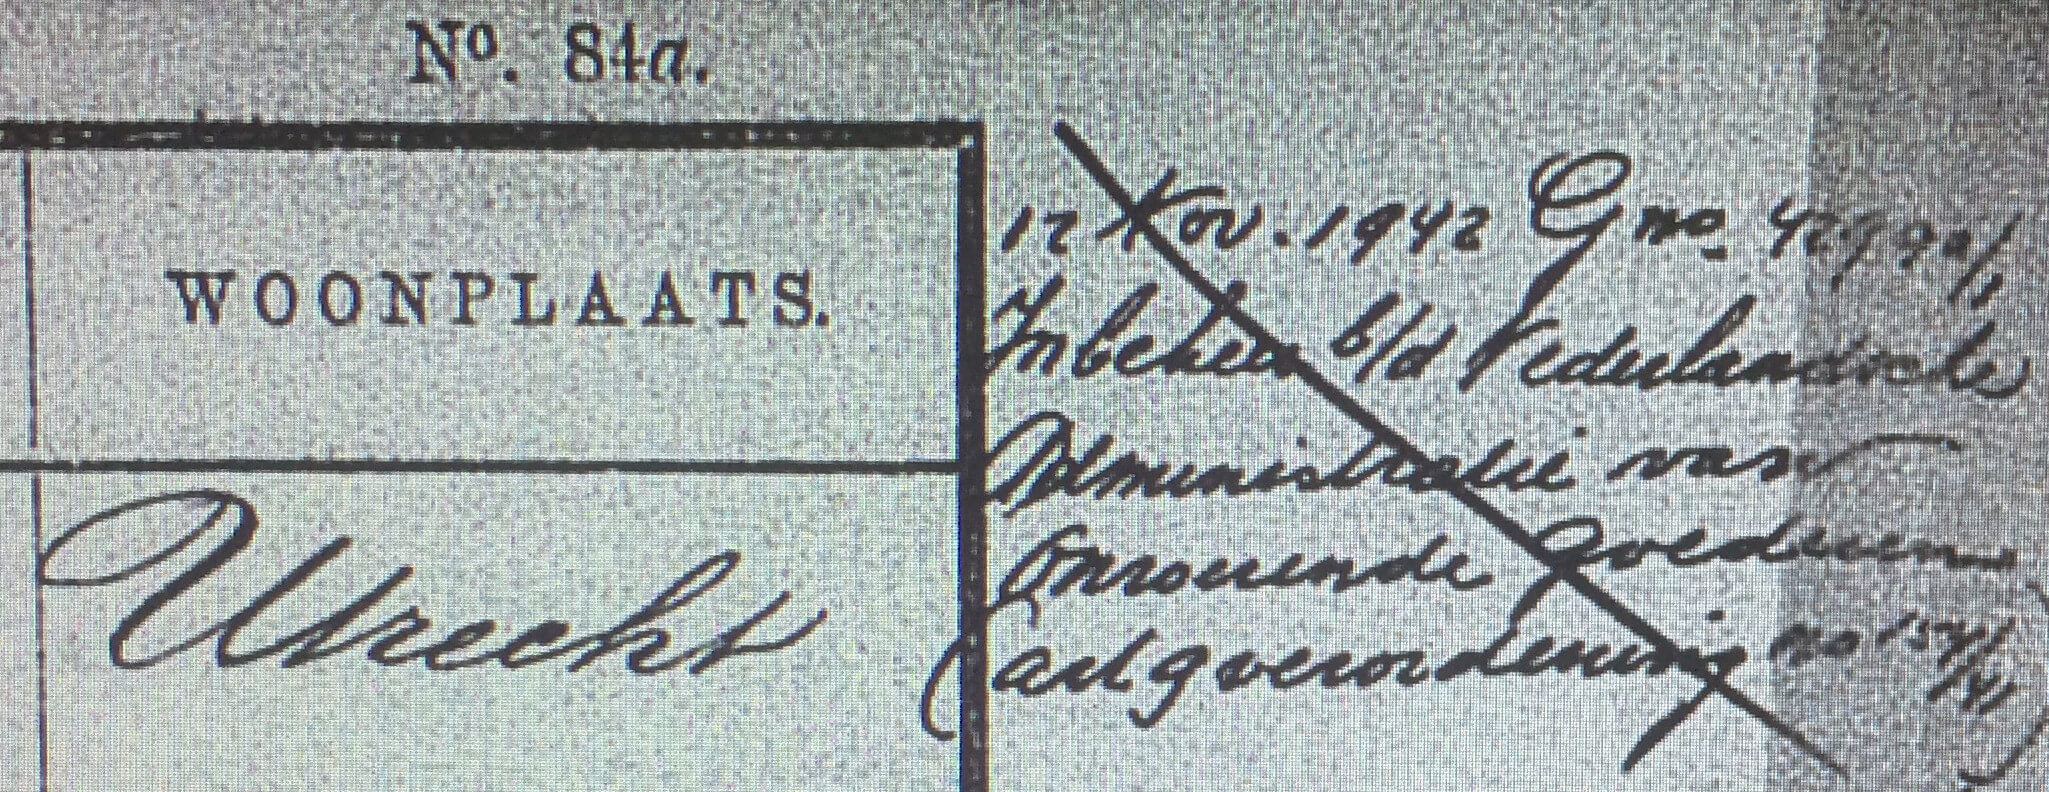 No. 84a.
WOONPLAATS.
Utrecht
12 Nov. 1942 G no.
In beheer b/d Nederlandsche
Administratie van
Onroerende goederen
(art 9 verordening no 154/41)